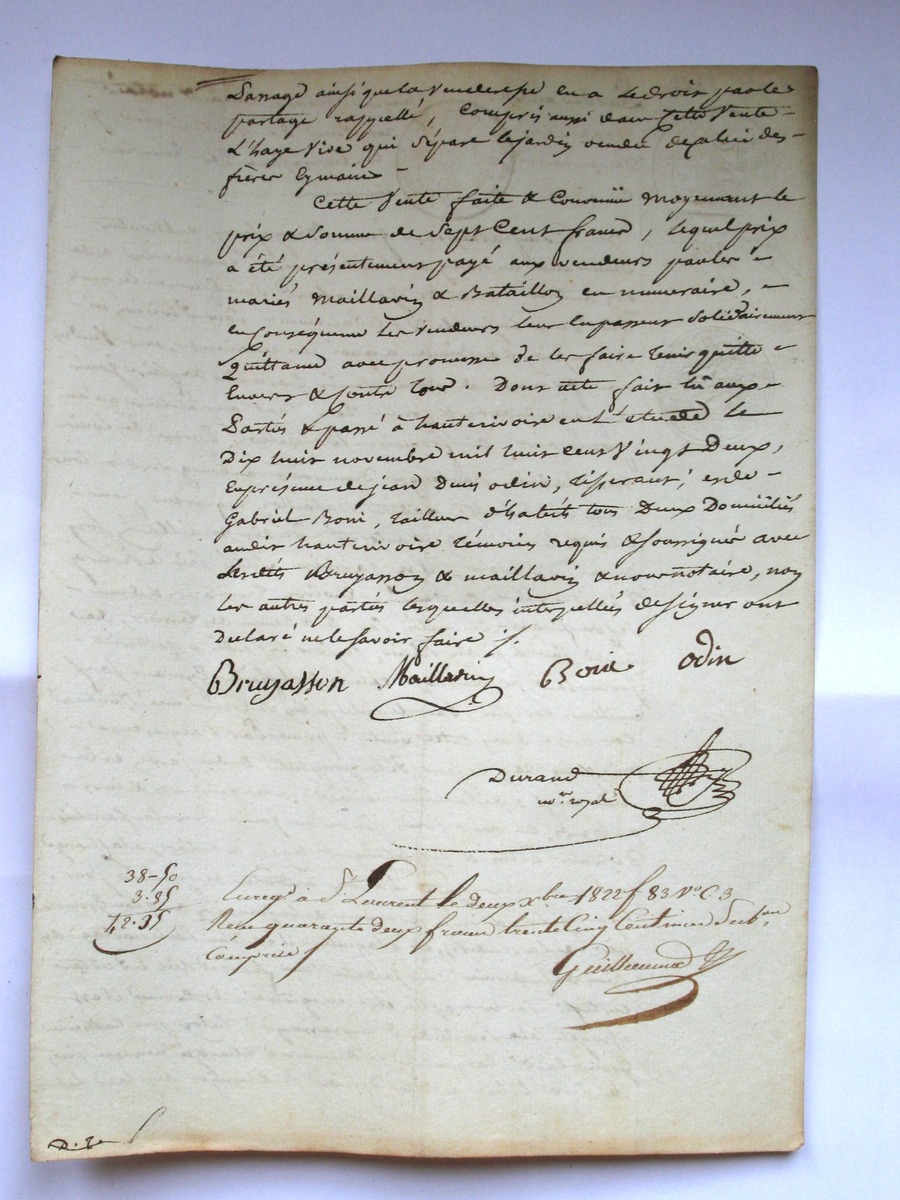 passage ainsi que la venderesse en a le droit par le
partage rappellé, compris aussi dans cette vente
L'haye vive qui sépare le jardin vendu de celui des
frères Eymain
Cette vente faite & convenüe moyennant le
prix & somme de Sept Cent francs, lequel prix
a été présentement payé aux vendeurs par les
mariés Maillavin & Bataillon en numeraire,
en conséquence les vendeurs leur en passent solidairement
Quittance avec promesse de les faire tenir quitte
Envers & contre tous. Dont acte fait lû aux
Parties & passé à hauterivoire en L'étude le
Dix huit novembre mil huit cent vingt Deux,
En présence de jean Denis odin, tisserand, et de
Gabriel Boni, tailleur d'habits tous Deux Domiciliés
audit hauterivoire témoins requis & soussignés avec
Lesdits Bruyasson & maillavin & nous notaire, non
les autres parties lesquelles interpellées de signer ont
Déclaré ne le savoir faire ./.
Bruyasson Maillavin Boni odin
Durand
no.re royal
38-50
3.85
42.35
Enreg.é à S.t Laurent le deux Xbre 1822 f 83 V.o C. 3
Reçu quarante deux francs trente cinq Centimes Subv.on
Comprise